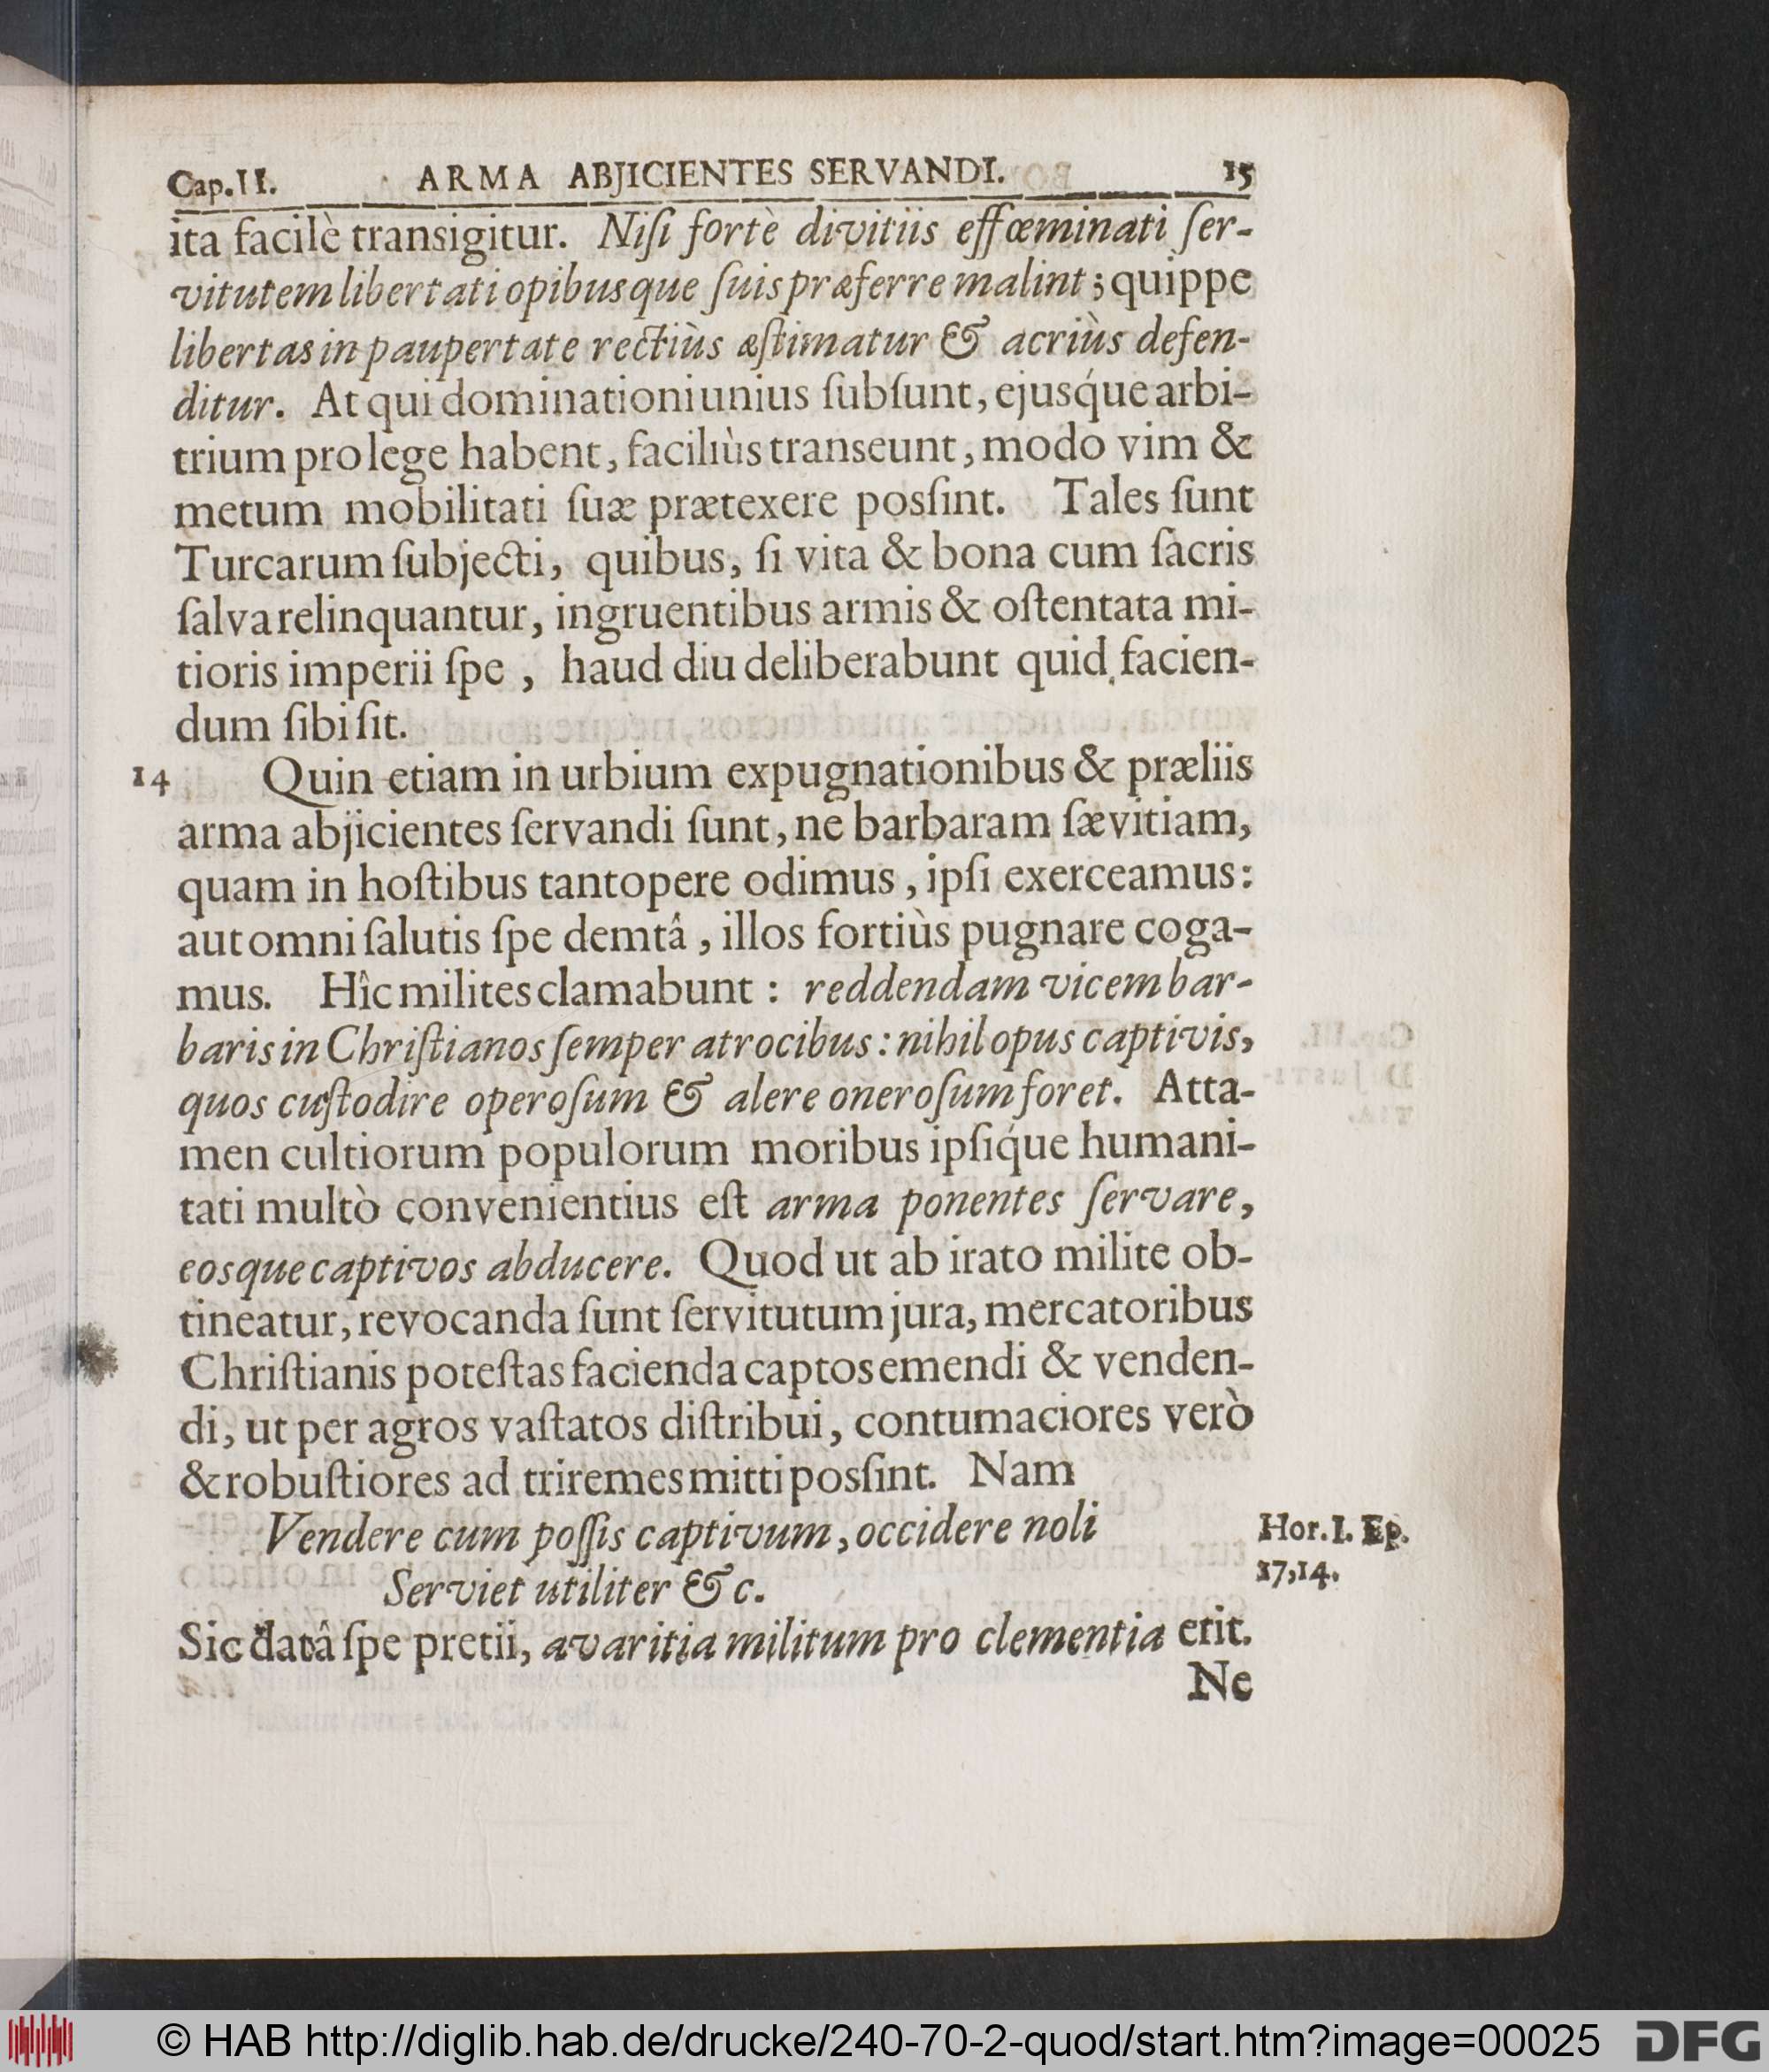 Cap.II. ARMA ABJICIENTES SERVANDI. 15
ita facilè transigitur. Niſi fortè divitiis effœminati ſer-
vitutem libertati opibusque ſuis præferre malint; quippe
libertas in paupertate rectiùs æſtimatur & acriùs defen-
ditur. At qui dominationi unius ſubſunt, ejusq́ue arbi-
trium pro lege habent, faciliùs transeunt, modo vim &
metum mobilitati ſuæ prætexere posſint. Tales ſunt
Turcarum ſubjecti, quibus, ſi vita & bona cum ſacris
ſalva relinquantur, ingruentibus armis & oſtentata mi-
tioris imperii ſpe, haud diu deliberabunt quid facien-
dum ſibi ſit.
14 Quin etiam in urbium expugnationibus & præliis
arma abjicientes ſervandi ſunt, ne barbaram ſævitiam,
quam in hoſtibus tantopere odimus, ipſi exerceamus:
aut omni ſalutis ſpe demtâ, illos fortiùs pugnare coga-
mus. Hîc milites clamabunt: reddendam vicem bar-
baris in Chriſtianos ſemper atrocibus: nihil opus captivis,
quos cuſtodire operoſum & alere oneroſum foret. Atta-
men cultiorum populorum moribus ipſiq́ue humani-
tati multò convenientius eſt arma ponentes ſervare,
eosque captivos abducere. Quod ut ab irato milite ob-
tineatur, revocanda ſunt ſervitutum jura, mercatoribus
Chriſtianis poteſtas facienda captos emendi & venden-
di, ut per agros vaſtatos diſtribui, contumaciores verò
& robuſtiores ad triremes mitti posſint. Nam
Vendere cum poſſis captivum, occidere noli
Serviet utiliter &c.
Hor. I. Ep.
17,14.
Sic datâ ſpe pretii, avaritia militum pro clementia erit.
Ne
© HAB http://diglib.hab.de/drucke/240-70-2-quod/start.htm?image=00025
DFG